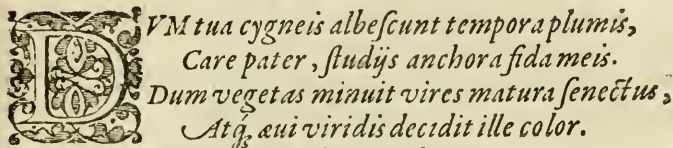 DVM tua cygneis albeſcunt tempora plumis,
Care pater, ſtudijs anchora fida meis.
Dum vegetas minuit vires matura ſenectus,
Atq́, æui viridis decidit ille color.